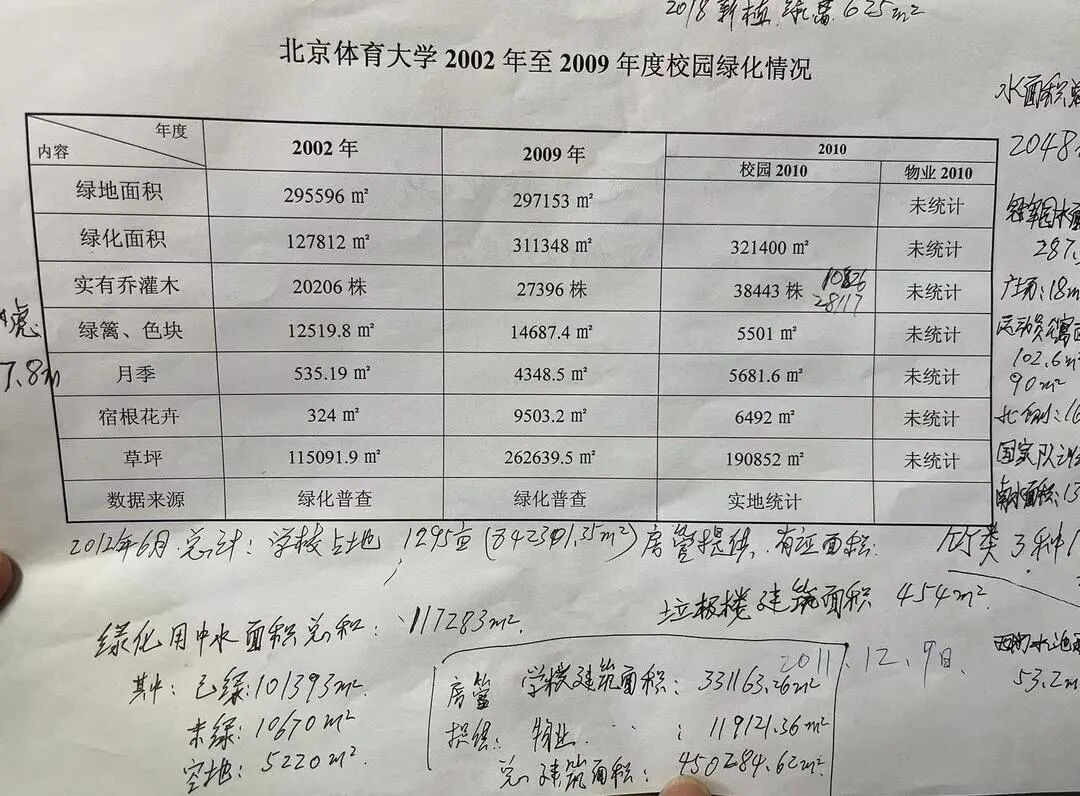 2018新植绿篱625m²
北京体育大学 2002 年至 2009 年度校园绿化情况
水面积总
2048
年度 内容 2002 年 2009 年 2010
校园 2010 物业 2010
绿地面积 295596 ㎡ 297153 ㎡ 未统计
绿化面积 127812 ㎡ 311348 ㎡ 321400 ㎡ 未统计
287.
实有乔灌木 20206 株 27396 株 38443 株 未统计
28117
广场:18m
绿篱、色块 12519.8 ㎡ 14687.4 ㎡ 5501 ㎡ 未统计
虎
7.8m
运动员公寓
102.6m²
90m²
月季 535.19 ㎡ 4348.5 ㎡ 5681.6 ㎡ 未统计
宿根花卉 324 ㎡ 9503.2 ㎡ 6492 ㎡ 未统计
草坪 115091.9 ㎡ 262639.5 ㎡ 190852 ㎡ 未统计
国家队
数据来源 绿化普查 绿化普查 实地统计
水面积:13
2012年6月总计:学校占地 1295亩(842301.35m²)房管提供.有证面积:
竹类 3种
垃圾楼建筑面积 454m².
绿化用中水面积总和:117283m².
2011.12.9日.
其中:已绿:101393m².
未绿:10670m²
空地:5220m².
房管 学校建筑面积:331163.26m²
提供:物业 〃 :119121.36m²
总建筑面积:450284.62m².
水池
53.2m